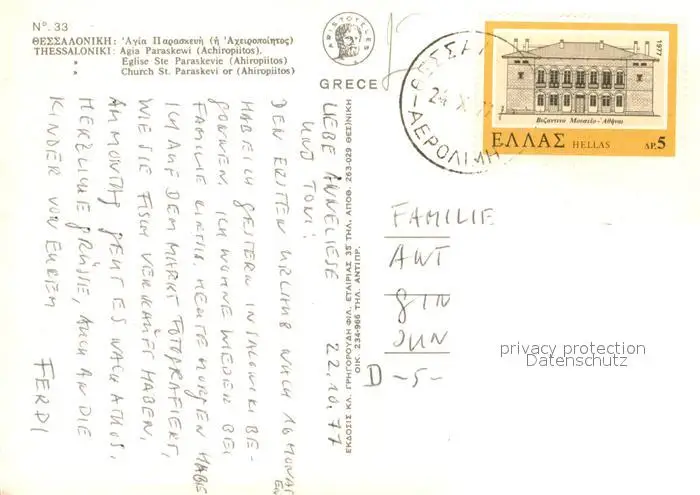 Nº. 33
ΘΕΣΣΑΛΟΝΙΚΗ : Ἁγία Παρασκευή (ἡ Ἀχειροποίητος)
THESSALONIKI: Agia Paraskewi (Achiropiitos).
» Eglise Ste Paraskevie (Ahiropiitos)
» Church St. Paraskevi or (Ahiropiitos)
ARISTOTELES
GRECE
ΕΚΔΟΣΙΣ ΚΛ. ΓΡΗΓΟΡΟΥΔΗ·ΦΙΛ. ΕΤΑΙΡΙΑΣ 35 ΤΗΛ. ΑΠΟΘ. 263-029 ΘΕΣ)ΝΙΚΗ
ΟΙΚ. 234-966 ΤΗΛ. ΑΝΤΙΠΡ.
22.10.77
LIEBE ANNELIESE
UND TONI!
DEN ERSTEN URLAUB NACH 16 MONATEN
HABE ICH GESTERN IN SALONIKI BE-
GONNEN. ICH WOHNE WIEDER BEI
FAMILIE HEUTE MORGEN HABE
ICH AUF DEM MARKT FOTOGRAFIERT,
WIE SIE FISCH VERKAUFT HABEN.
AM MONTAG GEHT ES NACH ATHOS.
HERZLICHE GRÜSSE, AUCH AN DIE
KINDER VON EUREM
FERDI
ΘΕΣΣΑΛ
24.X.77
ΑΕΡΟΛΙΜΗΝ
1977
Βυζαντινο Μουσείο - Ἀθῆναι
ΕΛΛΑΣ HELLAS ΔΡ. 5
FAMILIE
D -5-
privacy protection
Datenschutz